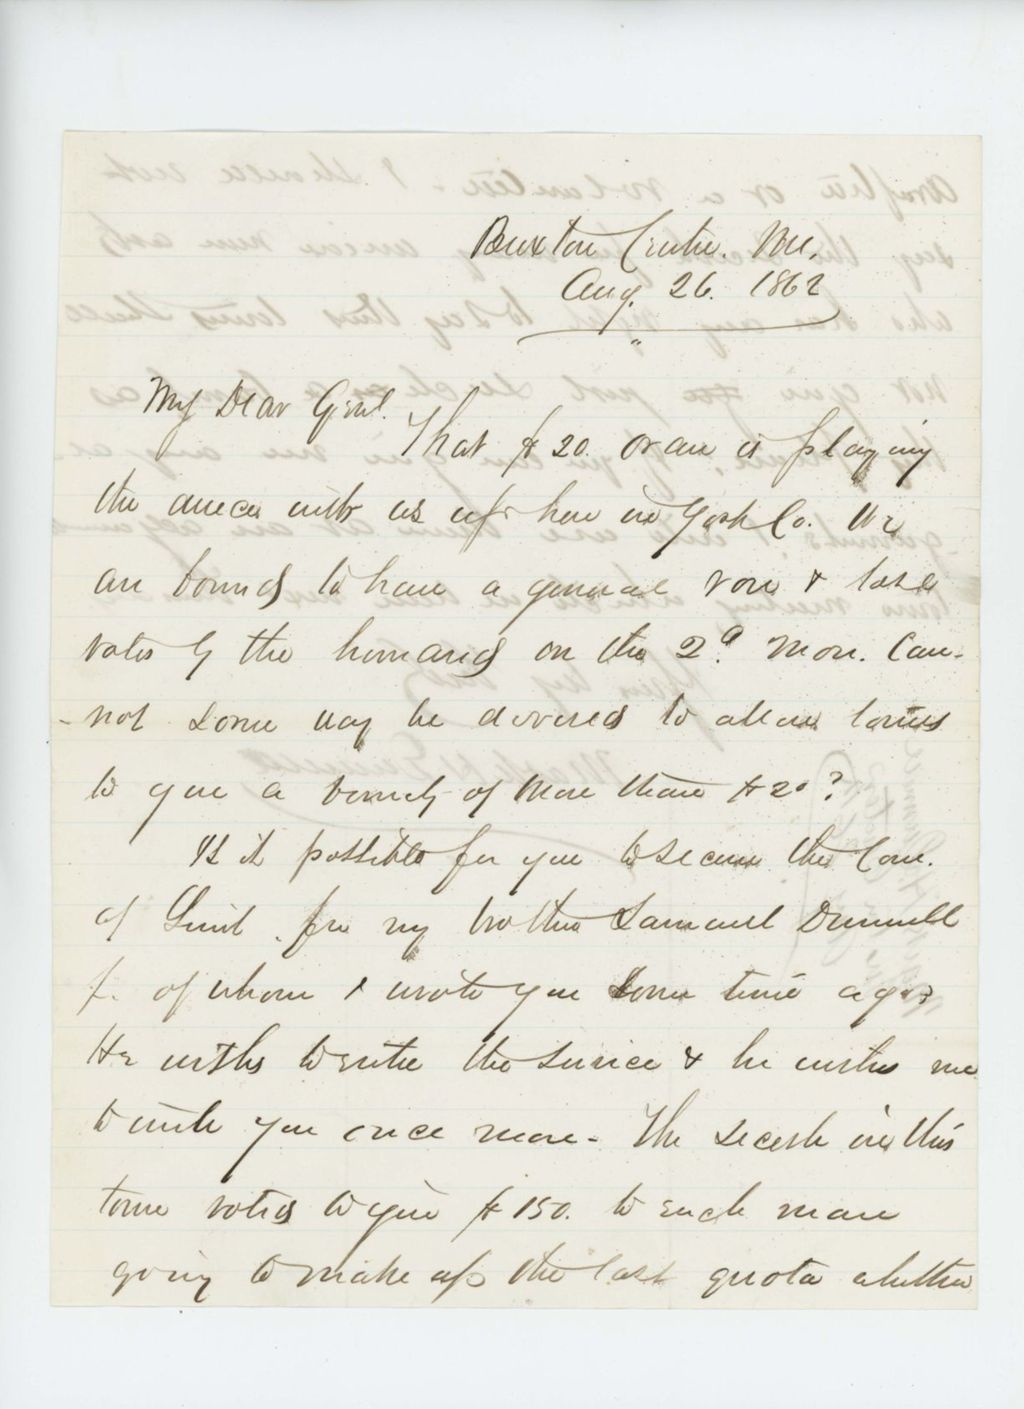 Buxton Centre. Me.
Aug. 26. 1862
My Dear Genl.
That $20. order is playing
the deuce with us up here in York Co. We
are bound to have a general row & lose
votes by the thousand on the 2d. Mon. Can-
-not some way be devised to allow towns
to give a bounty of more than $20?
Is it possible for you to secure the Com.
of Lieut. for my brother Samuel Dunnell
Jr. of whom I wrote you some time ago?
He wishes to enter the service & he wishes me
to write you once more - The secesh in this
town voted to give $150. to each man
going to make up the last quota whether